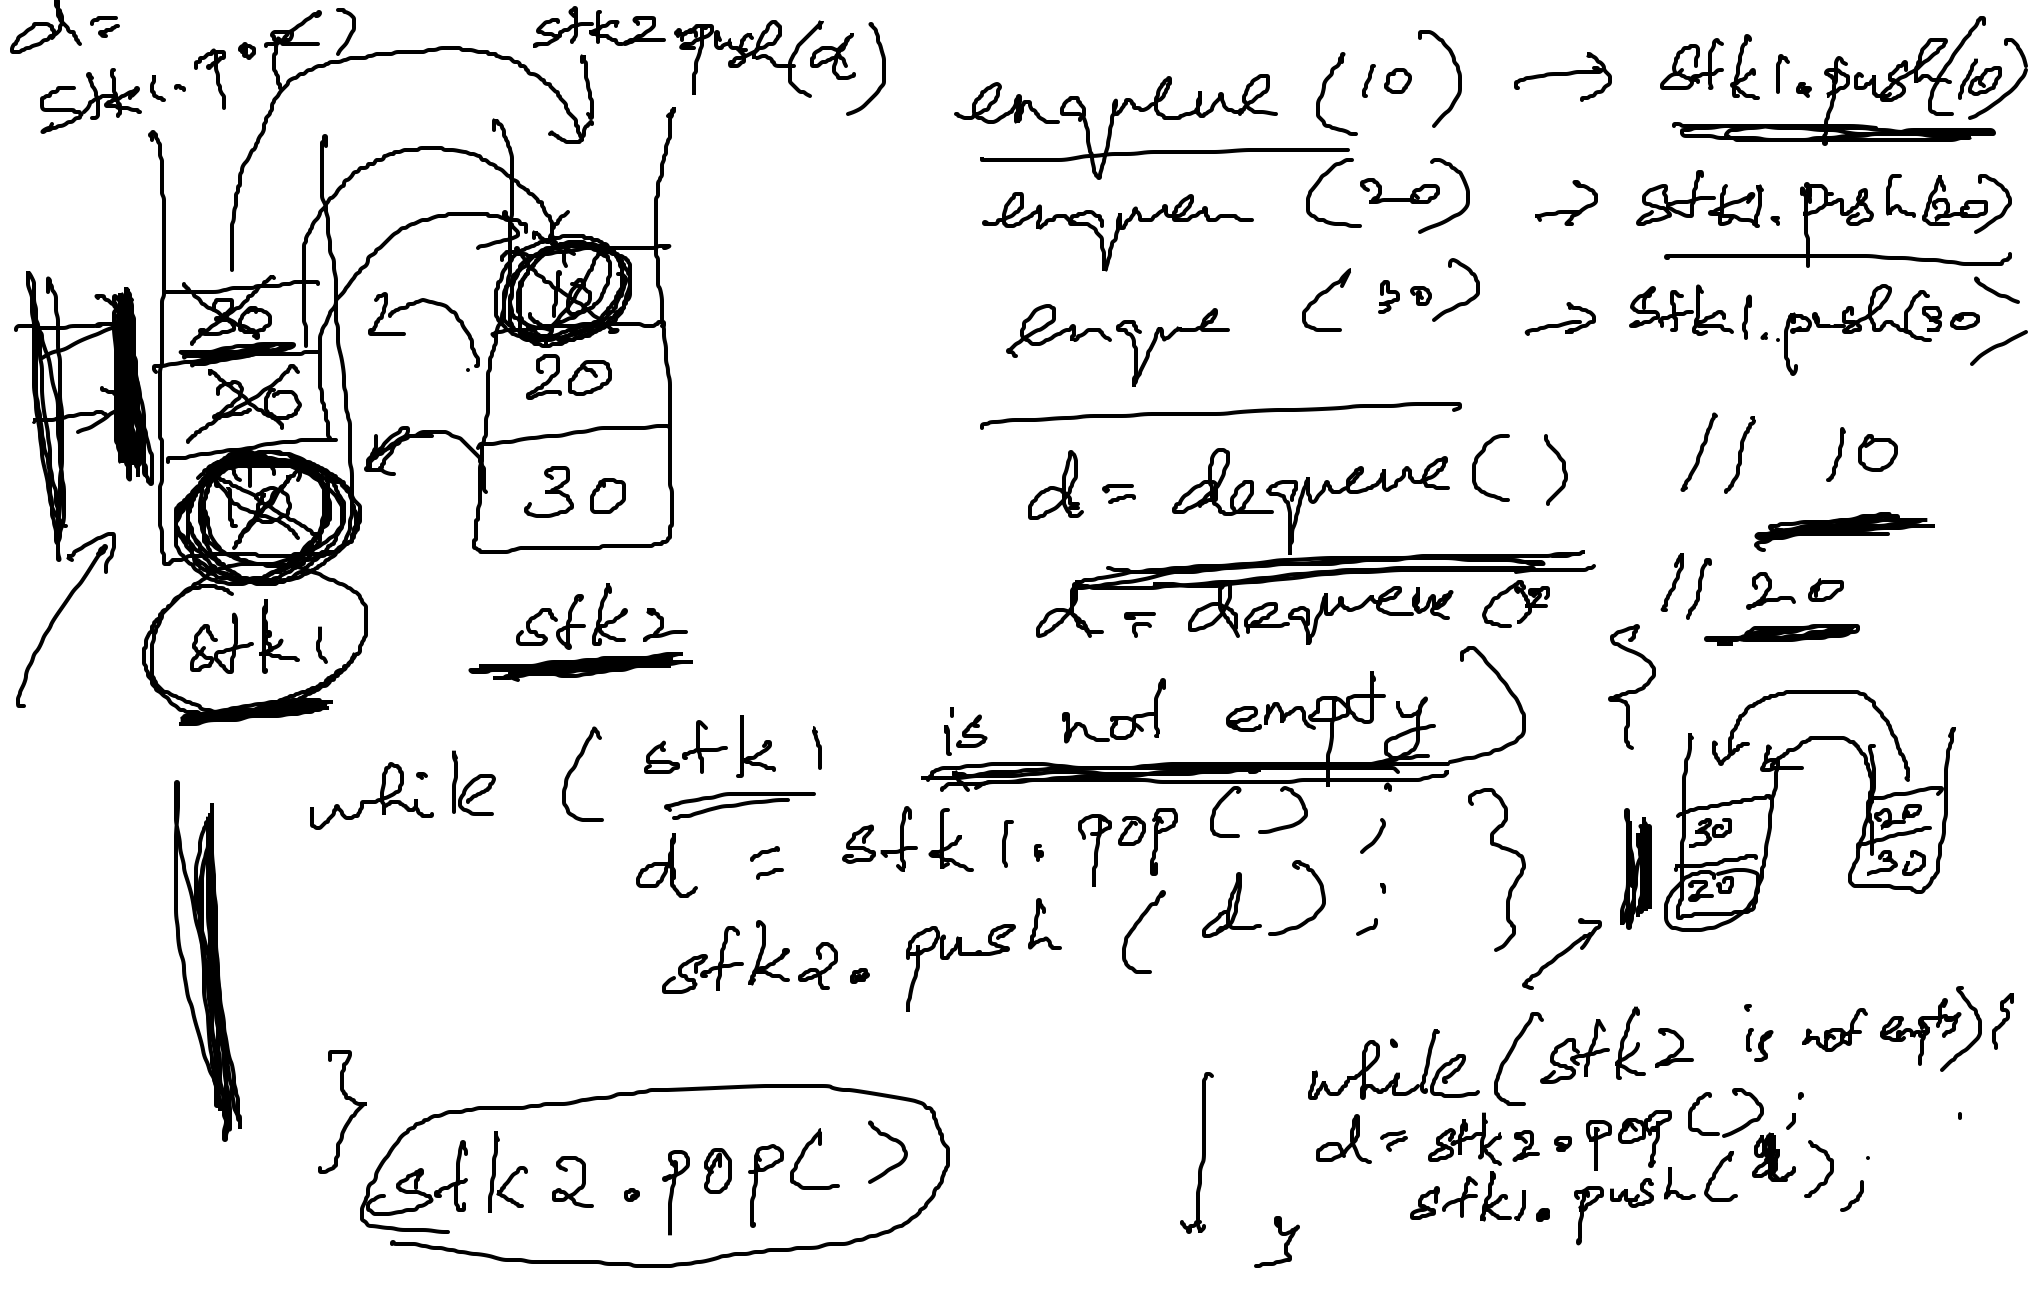 d =
stk1.pop()
stk2.push(d)
30
20
10
10
20
30
stk1
stk2
enqueue (10) → stk1.push(10)
enqueue (20) → stk1.push(20)
enque (30) → stk1.push(30)
d = dequeue() // 10
d = dequeue() // 20
while ( stk1 is not empty ) {
d = stk1.pop();
stk2.push(d);
}
stk2.pop()
30
20
20
30
while (stk2 is not empty) {
d = stk2.pop();
stk1.push(d);
}